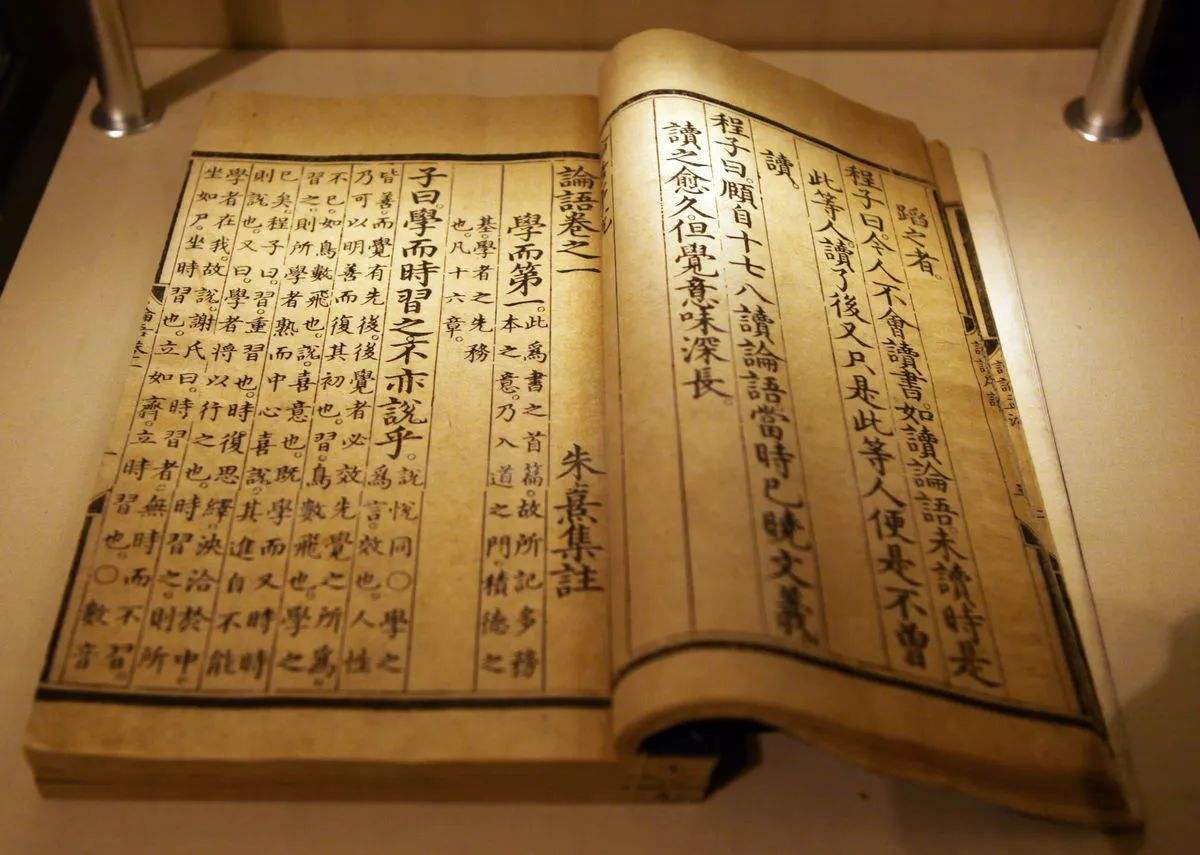 蹈之者。
程子曰。今人不會讀書。如讀論語。未讀時是
此等人。讀了後又只是此等人。便是不曾
讀。
程子曰。頤自十七八讀論語。當時已曉文義
讀之愈久。但覺意味深長。
論語卷之一 朱熹集註
學而第一。此爲書之首篇。故所記多務
本之意。乃入道之門。積德之
基。學者之先務
也。凡十六章。
子曰。學而時習之。不亦說乎。說悅同○學之
爲言。效也。人性
皆善。而覺有先後。後覺者必效先覺之所爲。
乃可以明善而復其初也。習。鳥數飛也。學之
不已。如鳥數飛也。說。喜意也。既學而又時時
習之。則所學者熟而中心喜說。其進自不能
已矣。程子曰。習。重習也。時復思繹。浹洽於中。
則說也。又曰。學者將以行之也。時習之。則所
學者在我。故說。謝氏曰。時習者。無時而不習。
坐如尸。坐時習也。立如齊。立時習也。○數音